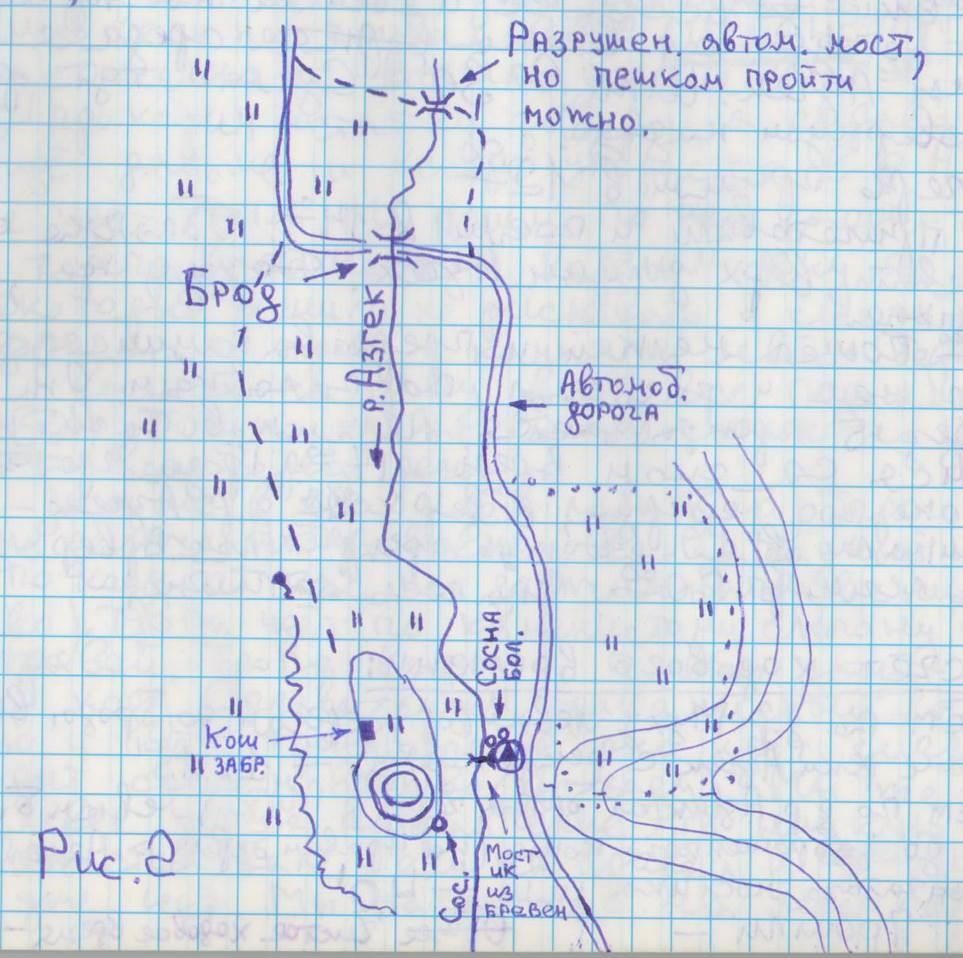 Разрушен. автом. мост,
но пешком пройти
можно.
Брод
р. Азгек
Автомоб.
дорога
Сосна
бол.
Кош
забр.
Рис. 2
Сос.
Мост-
ик
из
бревен